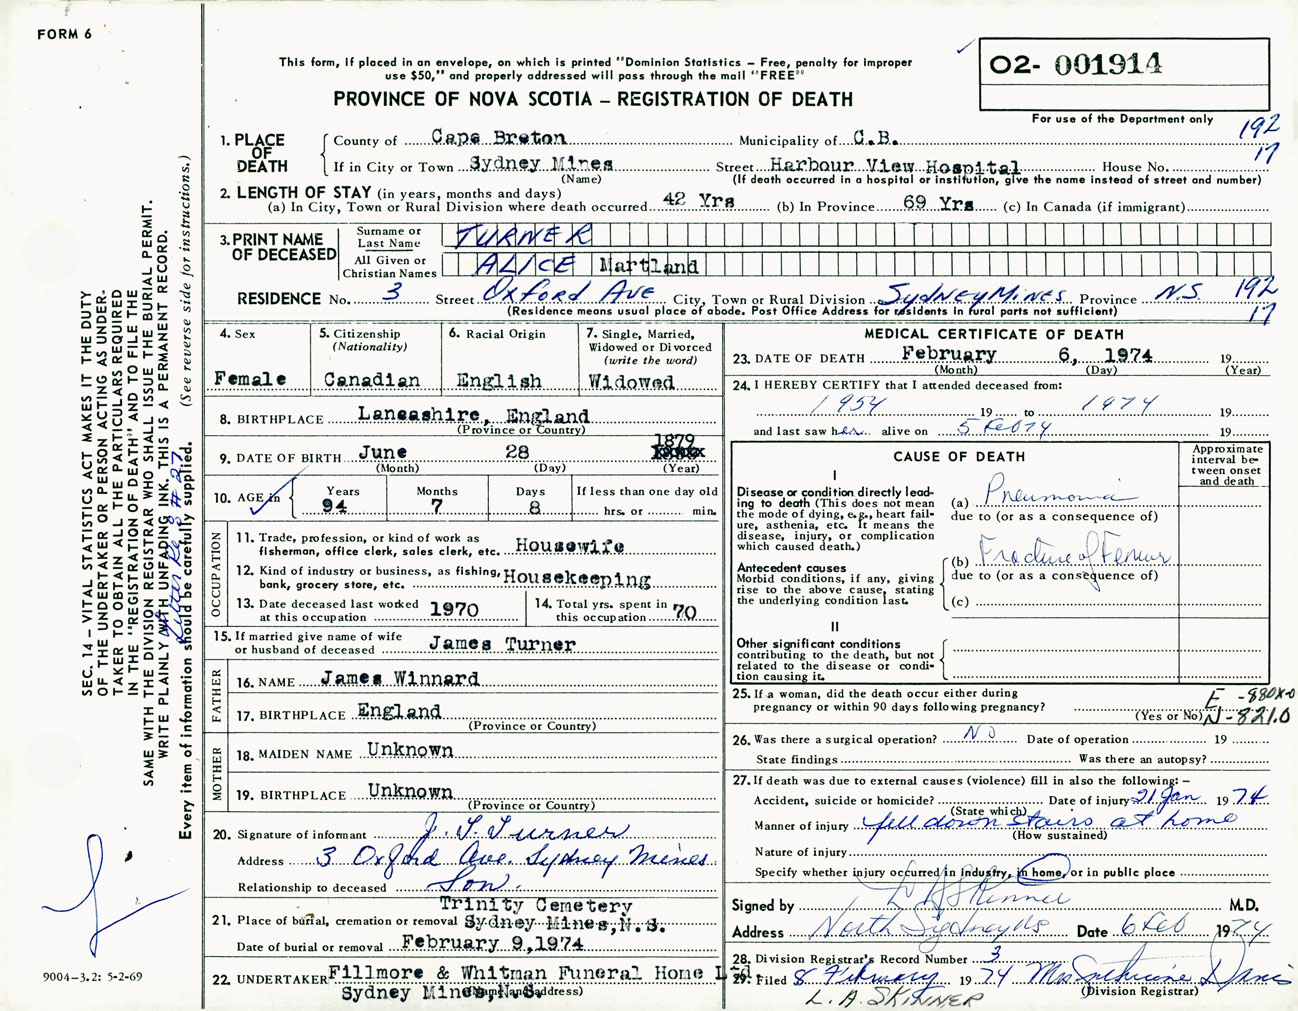 FORM 6
This form, if placed in an envelope, on which is printed "Dominion Statistics – Free, penalty for improper
use $50," and properly addressed will pass through the mail "FREE"
PROVINCE OF NOVA SCOTIA – REGISTRATION OF DEATH
02- 001914
For use of the Department only
192
17
1. PLACE OF DEATH
County of Cape Breton Municipality of C.B.
If in City or Town Sydney Mines Street Harbour View Hospital House No.
(Name) (If death occurred in a hospital or institution, give the name instead of street and number)
2. LENGTH OF STAY (in years, months and days)
(a) In City, Town or Rural Division where death occurred 42 Yrs (b) In Province 69 Yrs (c) In Canada (if immigrant)
3. PRINT NAME OF DECEASED
Surname or Last Name TURNER
All Given or Christian Names ALICE Martland
RESIDENCE No. 3 Street Oxford Ave City, Town or Rural Division Sydney Mines Province N.S. 192
(Residence means usual place of abode. Post Office Address for residents in rural parts not sufficient) 17
4. Sex
Female
5. Citizenship
(Nationality)
Canadian
6. Racial Origin
English
7. Single, Married,
Widowed or Divorced
(write the word)
Widowed
8. BIRTHPLACE Lancashire, England
(Province or Country)
9. DATE OF BIRTH June 28 1879
(Month) (Day) (Year)
10. AGE in
Years 94
Months 7
Days 8
If less than one day old
hrs. or min.
OCCUPATION
11. Trade, profession, or kind of work as
fisherman, office clerk, sales clerk, etc. Housewife
12. Kind of industry or business, as fishing,
bank, grocery store, etc. Housekeeping
13. Date deceased last worked
at this occupation 1970
14. Total yrs. spent in
this occupation 70
15. If married give name of wife
or husband of deceased James Turner
FATHER
16. NAME James Winnard
17. BIRTHPLACE England
(Province or Country)
MOTHER
18. MAIDEN NAME Unknown
19. BIRTHPLACE Unknown
(Province or Country)
20. Signature of informant J. T. Turner
Address 3 Oxford Ave. Sydney Mines
Relationship to deceased Son.
Trinity Cemetery
21. Place of burial, cremation or removal Sydney Mines, N.S.
Date of burial or removal February 9, 1974
22. UNDERTAKER Fillmore & Whitman Funeral Home Ltd.
Sydney Mines, N.S.
(Name and address)
MEDICAL CERTIFICATE OF DEATH
23. DATE OF DEATH February 6, 1974 19
(Month) (Day) (Year)
24. I HEREBY CERTIFY that I attended deceased from:
1954 19 to 1974 19
and last saw her alive on 5 Feb 74 19
CAUSE OF DEATH
Approximate interval between onset and death
I
Disease or condition directly lead-
ing to death (This does not mean
the mode of dying, e.g., heart fail-
ure, asthenia, etc. It means the
disease, injury, or complication
which caused death.)
(a) Pneumonia
due to (or as a consequence of)
Antecedent causes
Morbid conditions, if any, giving
rise to the above cause, stating
the underlying condition last.
(b) Fracture of Femur
due to (or as a consequence of)
(c)
II
Other significant conditions
contributing to the death, but not
related to the disease or condi-
tion causing it.
25. If a woman, did the death occur either during
pregnancy or within 90 days following pregnancy?
(Yes or No)
E -880X-0
N-821.0
26. Was there a surgical operation? NO Date of operation 19
State findings Was there an autopsy?
27. If death was due to external causes (violence) fill in also the following: –
Accident, suicide or homicide? Date of injury 21 Jan 1974
(State which)
Manner of injury fell down stairs at home
(How sustained)
Nature of injury
Specify whether injury occurred in Industry, in home, or in public place
Signed by L A Skinner M.D.
Address North Sydney NS Date 6 Feb 1974
28. Division Registrar's Record Number 3
29. Filed 8 February 1974 Mrs Davis
(Division Registrar)
L. A. SKINNER
SEC. 14 – VITAL STATISTICS ACT MAKES IT THE DUTY
OF THE UNDERTAKER OR PERSON ACTING AS UNDER-
TAKER TO OBTAIN ALL THE PARTICULARS REQUIRED
IN THE "REGISTRATION OF DEATH" AND TO FILE THE
SAME WITH THE DIVISION REGISTRAR WHO SHALL ISSUE THE BURIAL PERMIT.
WRITE PLAINLY WITH UNFADING INK. THIS IS A PERMANENT RECORD.
Every item of information should be carefully supplied. (See reverse side for instructions.)
9004-3.2: 5-2-69